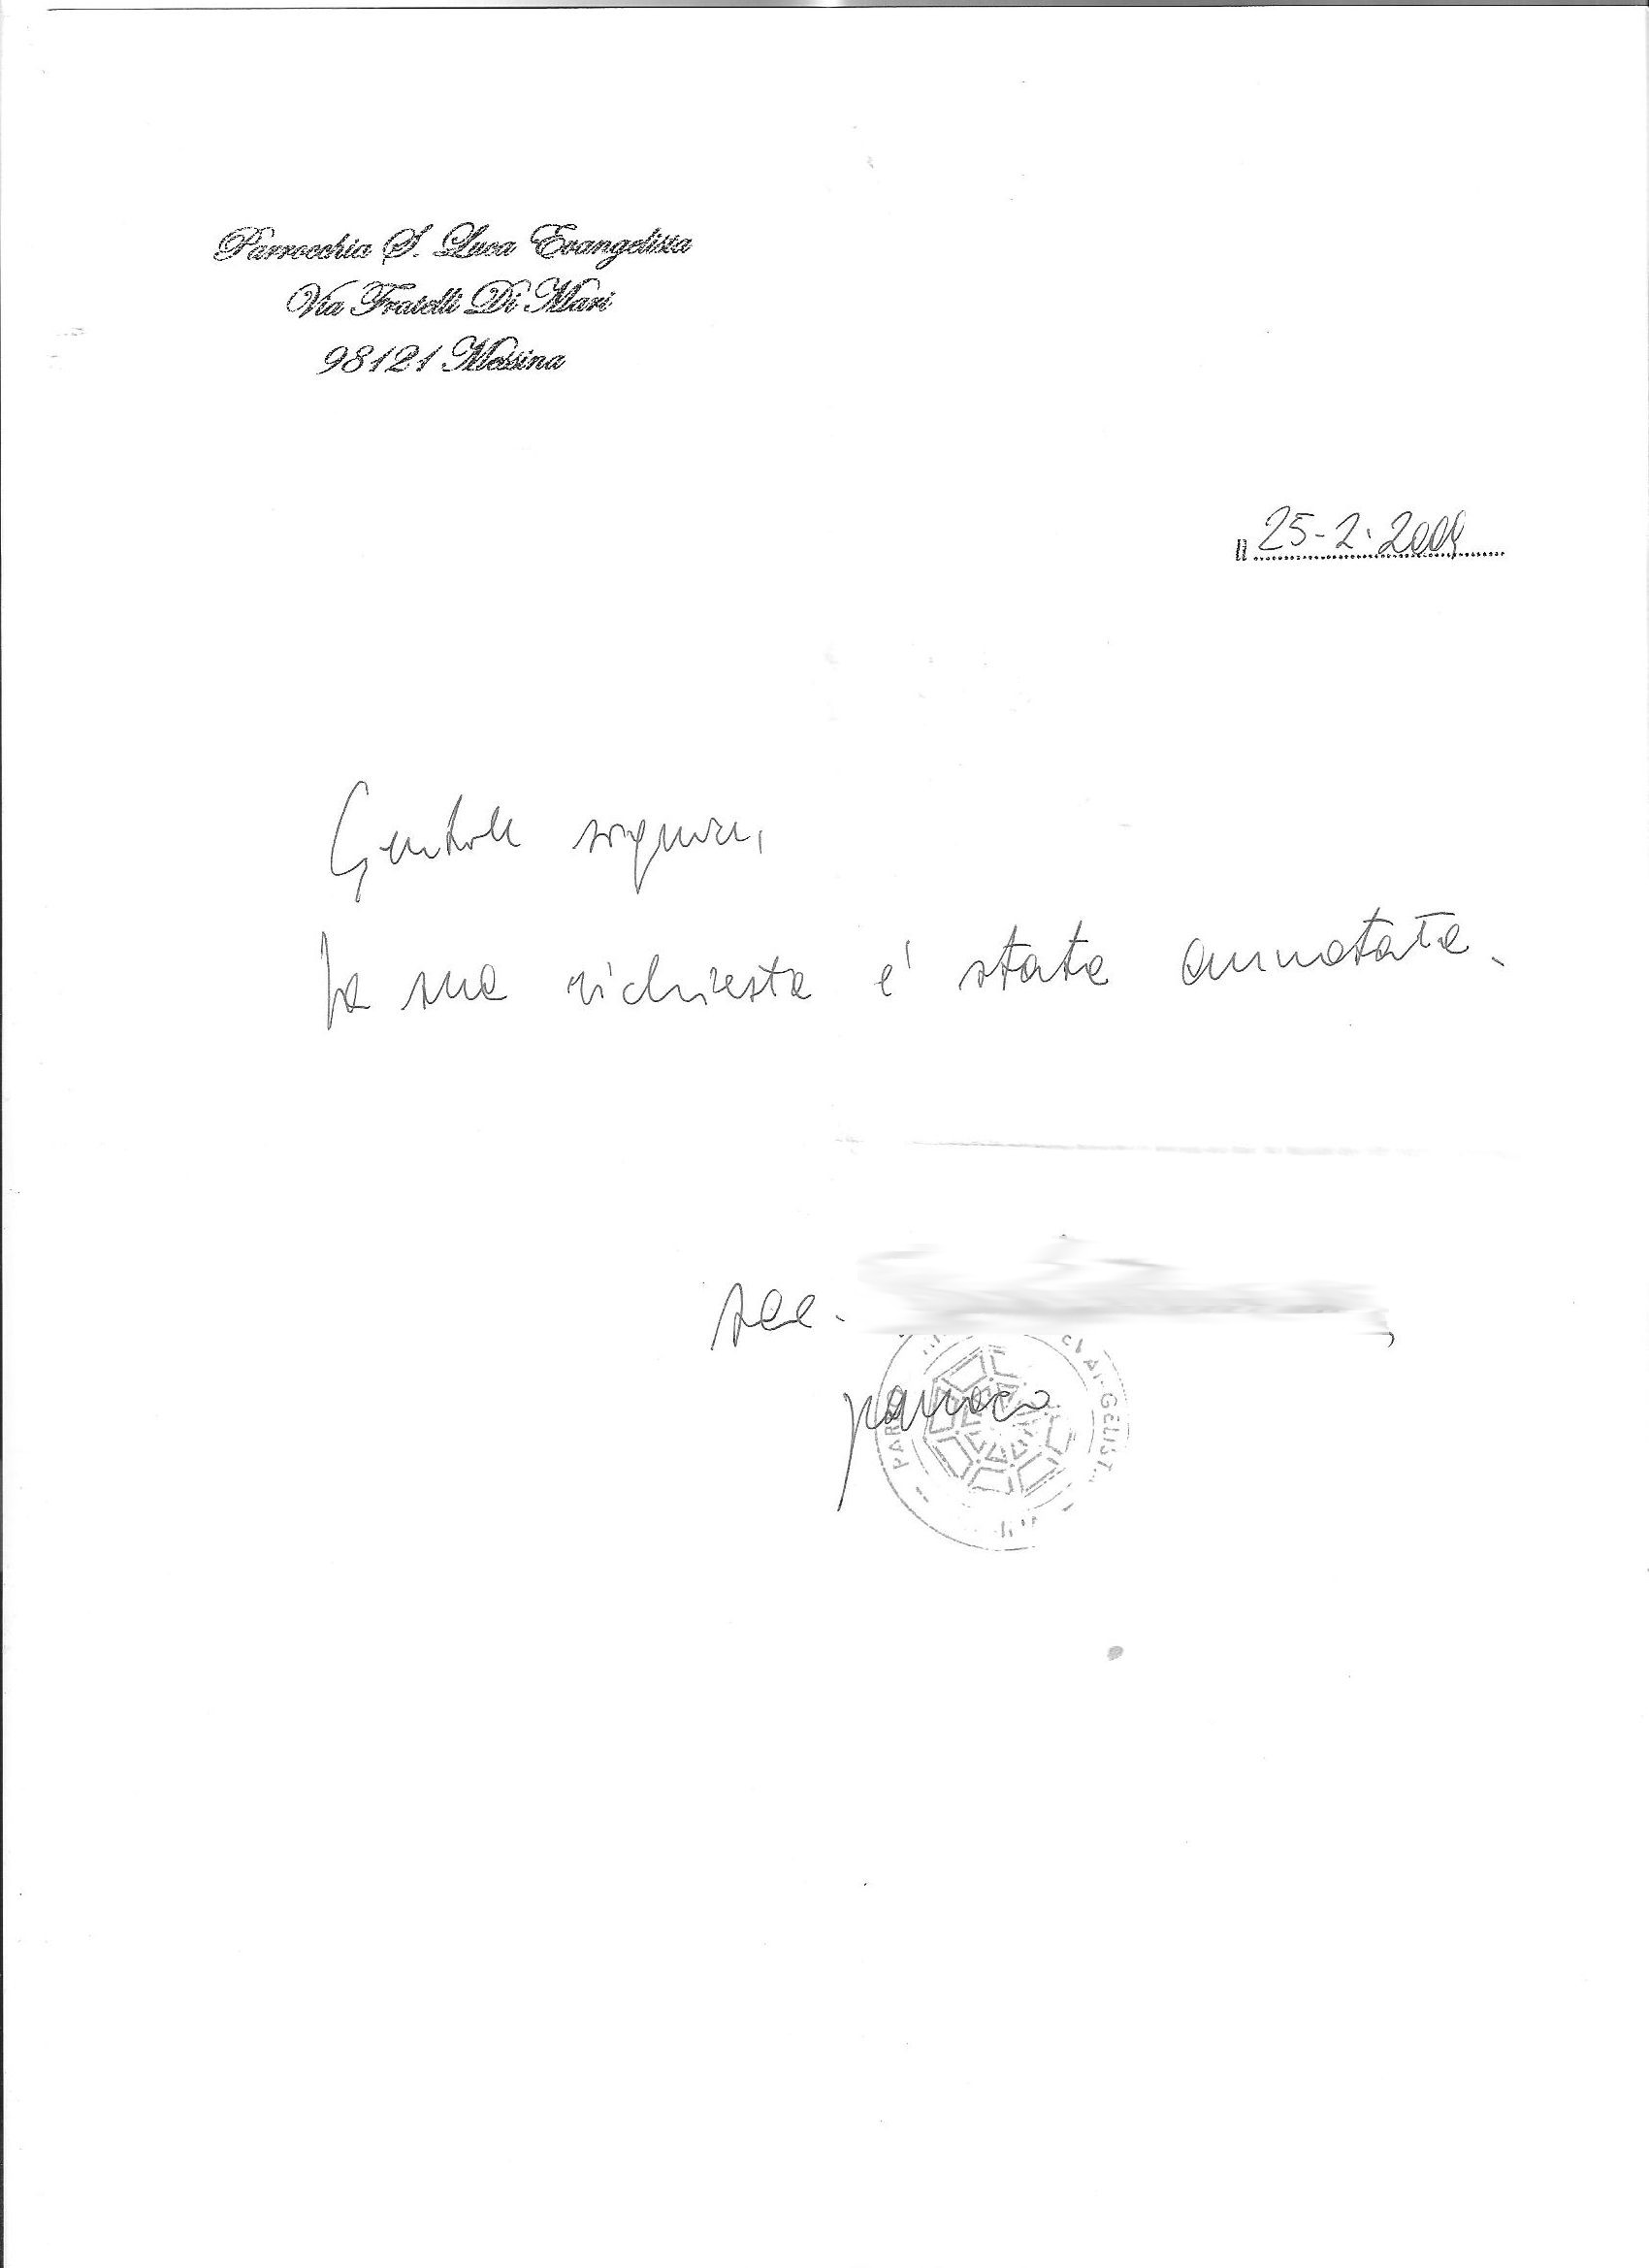 Parrocchia S. Luca Evangelista
Via Fratelli Di Mari
98121 Messina
lì 25-2-2009
Gentile signore,
la sua richiesta e' stata annotata.
sac.
parroco
PAR
GELIST